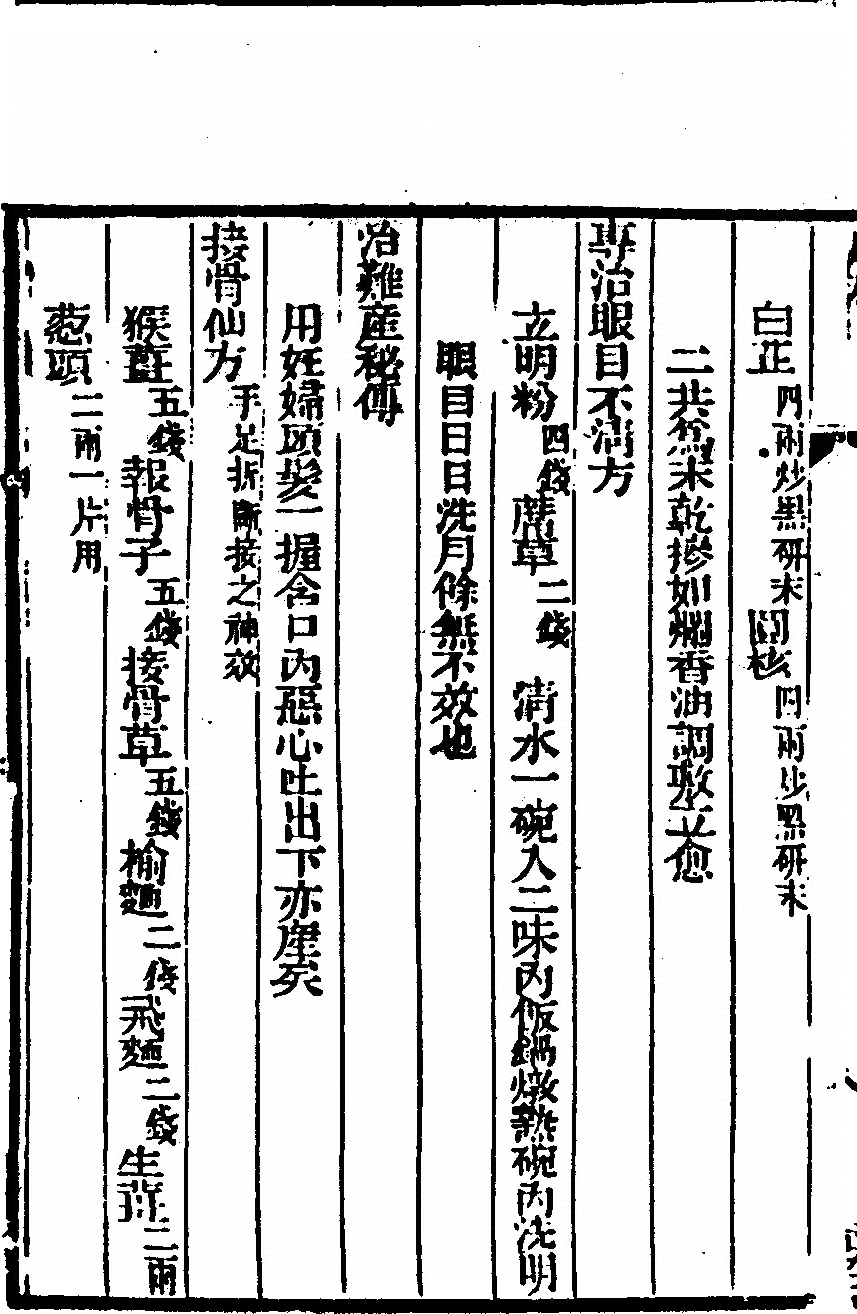 白芷四兩炒黑研末 核四兩炒黑研末
二共為末乾摻如爛香油調敷立愈
專治眼目不清方
立明粉四錢 草二錢 清水一碗入二味內飯鍋燉熱碗內洗明
眼目日日洗月餘無不效也
治難產秘傳
用妊婦頭髮一握含口內惡心吐出下亦產矣
接骨仙方手足折斷接之神效
猴薑五錢報骨子五錢接骨草五錢榆麵二錢飛麵二錢生薑二兩
蔥頭二兩一片用